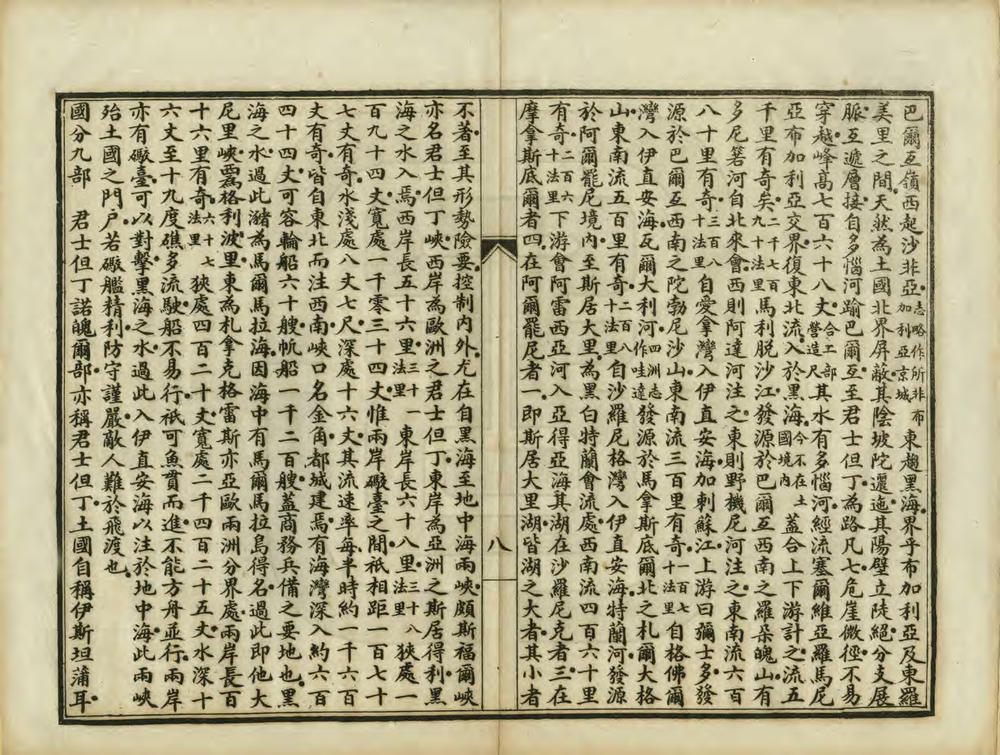 巴爾互嶺西起沙非亞志略作所非布加利亞京城東趨黑海界乎布加利亞及東羅
美里之間天然為土國北界屏敵其陰坡陀邐迤其陽壁立陡絕分支展
脈互遞層接自多惱河踰巴爾互至君士但丁為路凡七危崖微徑不易
穿越峰高七百六十八丈合工部營造尺其水有多惱河經流塞爾維亞羅馬尼
亞布加利亞交界復東北流入於黑海今不在土國境內蓋合上下游計之流五
千里有奇矣二千七百九十法里馬利脫沙江發源於巴爾互西南之羅朶媿山有
多尼箬河自北來會西則阿達河注之東則野機尼河注之東南流六百
八十里有奇三百八十法里自愛拿灣入伊直安海加剌蘇江上游曰彌士多發
源於巴爾互西南之院勃尼沙山東南流三百里有奇一百七十法里自格佛爾
灣入伊直安海瓦爾大利河四洲志作哇達發源於馬拿斯底爾北之札爾大格
山東南流五百里有奇二百八十法里自沙羅尼格灣入伊直安海特蘭河發源
於阿爾罷尼境內至斯居大里為黑白特蘭會流處西南流四百六十里
有奇二百六十法里下游會阿雷西亞河入亞得亞海其湖在沙羅尼克者三在
摩拿斯底爾者四在阿爾罷尼者一即斯居大里湖皆湖之大者其小者
八
不著至其形勢險要控制內外尤在自黑海至地中海兩峽頗斯福爾峽
亦名君士但丁峽西岸為歐洲之君士但丁東岸為亞洲之斯居得利黑
海之水入焉西岸長五十六里三十一法里東岸長六十八里三十八法里狹處一
百九十四丈寬處一千零三十四丈惟兩岸礮臺之間祇相距一百七十
七丈有奇水淺處八丈七尺深處十六丈其流速率每半時約一千六百
丈有奇皆自東北而注西南峽口名金角都城建焉有海灣深入約六百
四十四丈可容輪船六十艘帆船一千二百艘蓋商務兵備之要地也黑
海之水過此瀦為馬爾馬拉海因海中有馬爾馬拉島得名過此即他大
尼里峽馬格利波里東為札拿克格雷斯亦亞歐兩洲分界處兩岸長百
十六里有奇六十七法里狹處四百二十丈寬處二千四百二十五丈水深十
六丈至十九度礁多流駛船不易行祇可魚貫而進不能方舟並行兩岸
亦有礮臺可以對擊黑海之水過此入伊直安海以注於地中海此兩峽
殆土國之門戶若礮艦精利防守謹嚴敵人難於飛渡也
國分九部　君士但丁諾媿爾部亦稱君士但丁土國自稱伊斯坦蒲耳